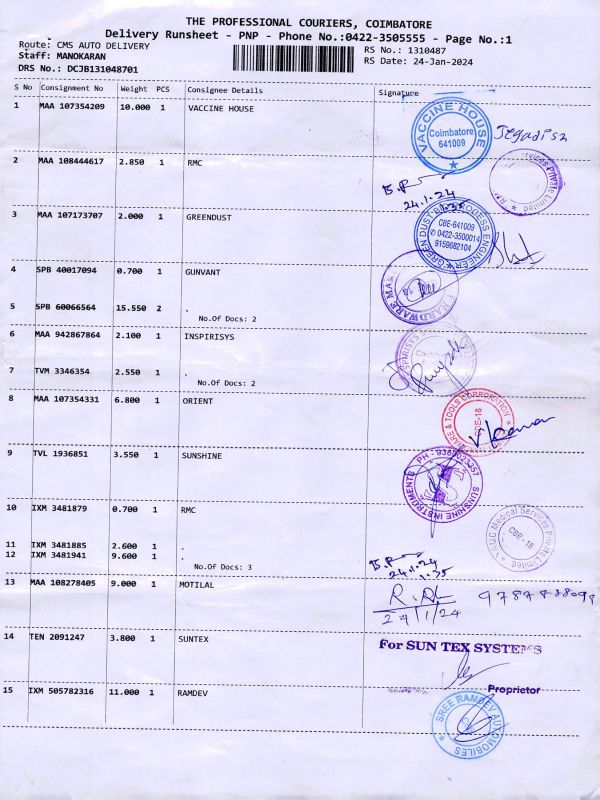 THE PROFESSIONAL COURIERS, COIMBATORE
Delivery Runsheet - PNP - Phone No.:0422-3505555 - Page No.:1
Route: CMS AUTO DELIVERY
RS No.: 1310487
Staff: MANOKARAN
RS Date: 24-Jan-2024
DRS No.: DCJB131048701
S No Consignment No Weight PCS Consignee Details Signature
1 MAA 107354209 10.000 1 VACCINE HOUSE
VACCINE HOUSE
Coimbatore
641009
2 MAA 108444617 2.850 1 RMC
24.1.24
3 MAA 107173707 2.000 1 GREENDUST
CBE-641009
0422-3500014
9159682104
4 SPB 40017094 0.700 1 GUNVANT
HARDWARE
5 SPB 60066564 15.550 2 .
No.Of Docs: 2
6 MAA 942867864 2.100 1 INSPIRISYS
7 TVM 3346354 2.550 1 .
No.Of Docs: 2
8 MAA 107354331 6.800 1 ORIENT
& TOOLS CORPORATION
CBE-18
9 TVL 1936851 3.550 1 SUNSHINE
SUNSHINE INSTRUMENTS
10 IXM 3481879 0.700 1 RMC
RMC Medical Services Private Limited
CBE-18
11 IXM 3481885 2.600 1 .
12 IXM 3481941 9.600 1 .
No.Of Docs: 3
24.1.24
1.35
13 MAA 108278405 9.000 1 MOTILAL
24/1/24
14 TEN 2091247 3.800 1 SUNTEX
For SUN TEX SYSTEMS
Proprietor
15 IXM 505782316 11.000 1 RAMDEV
SREE RAMDEV AUTOMOBILES